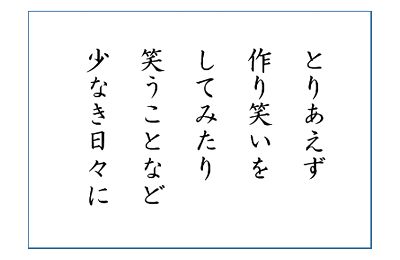 とりあえず
作り笑いを
してみたり
笑うことなど
少なき日々に